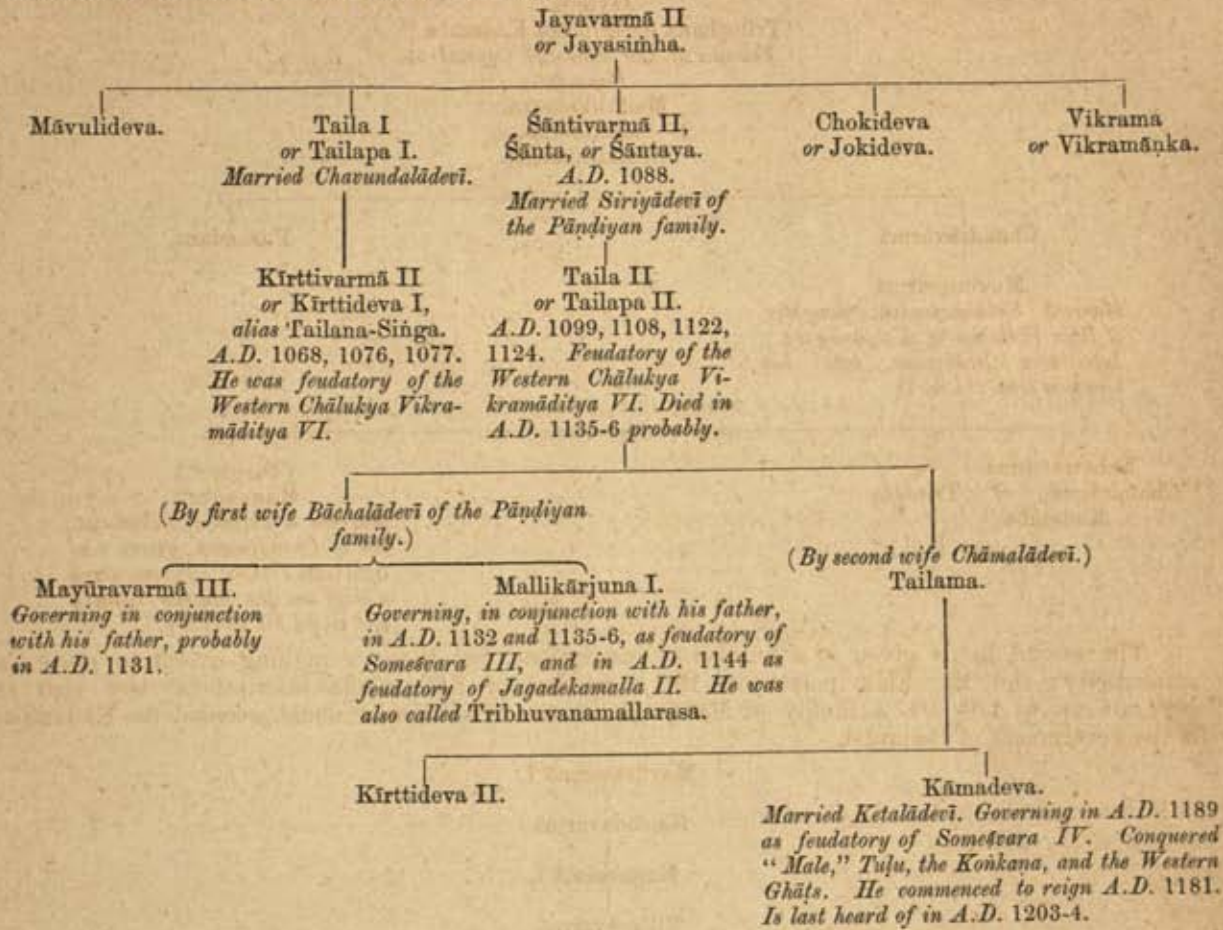 Jayavarmā II
or Jayasiṁha.
Māvulideva.
Taila I
or Tailapa I.
Married Chavundalādevī.
Śāntivarmā II,
Śānta, or Śāntaya.
A.D. 1088.
Married Siriyādevī of
the Pāṇḍiyan family.
Chokideva
or Jokideva.
Vikrama
or Vikramāṇka.
Kīrttivarmā II
or Kīrttideva I,
alias Tailana-Siṅga.
A.D. 1068, 1076, 1077.
He was feudatory of the
Western Chālukya Vikra-
māditya VI.
Taila II
or Tailapa II.
A.D. 1099, 1108, 1122,
1124. Feudatory of the
Western Chālukya Vi-
kramāditya VI. Died in
A.D. 1135-6 probably.
(By first wife Bāchalādevī of the Pāṇḍiyan
family.)
(By second wife Chāmalādevī.)
Tailama.
Mayūravarmā III.
Governing in conjunction
with his father, probably
in A.D. 1131.
Mallikārjuna I.
Governing, in conjunction with his father,
in A.D. 1132 and 1135-6, as feudatory of
Someśvara III, and in A.D. 1144 as
feudatory of Jagadekamalla II. He was
also called Tribhuvanamallarasa.
Kīrttideva II.
Kāmadeva.
Married Ketalādevī. Governing in A.D. 1189
as feudatory of Someśvara IV. Conquered
"Male," Tuḷu, the Koṅkaṇa, and the Western
Ghāṭs. He commenced to reign A.D. 1181.
Is last heard of in A.D. 1203-4.